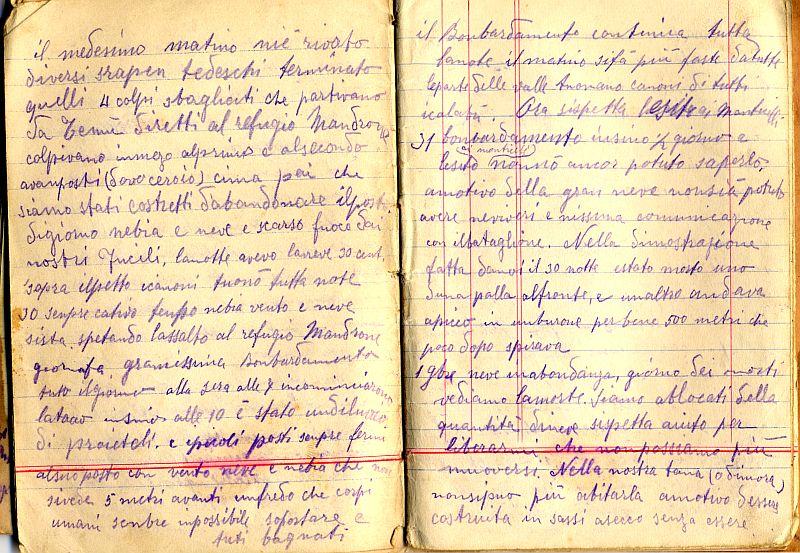 il medesimo matino niè rivato
diversi srapen tedeschi terminato
quelli 4 colpi sbagliati che partivano
da Temù diretti al refugio Mandrone
colpivano inmezo alprimo e alsecondo
avamposti (dovo ceroio) cima per che
siamo stati costretti dabandonare ilposto
digiorno nebia e neve e scarso fuoco dai
nostri Fucili, lanotte avevo laneve 30 cent.
sopra ilpetto icanoni tuonò tutta note
30 sempre cativo tempo nebia vento e neve
sista spetando lassalto al refugio Mandrone
giornata gramissima Bonbardamento
tuto ilgiorno alla sera alle 8 incominciarono
lataco insino alle 10 è stato undiluvio
di proietoli. e picoli posti senpre fermi
alsuo posto con vento neve e nebia che non
sivede 5 metri avanti unfredo che corpi
umani senbre inpossibile soportare e
tuti bagnati
il Bonbardamento continua tutta
lanote il matino sifà più forte datutte
leparte delle valle tuonano canoni di tutti
icalabri. Ora sispetta lesito, Monticelli
31 bonbardamento insino ½ giorno e
monticelli
lesito nonnò ancor potuto saperlo,
amotivo della gran neve nonsià potuto
avere neviveri e nissuna comunicazione
con ilbataglione. Nella dimostrazione
fatta danoi il 30 notte estato morto uno
duna palla alfronte, e unaltro andava
apico in unburone per bene 500 metri che
poco dopo spirava
1 9bre neve inabondanza, giorno dei morti
vediamo lamorte. siamo ablocati della
quantità dineve sispetta aiuto per
liberarmi che non possiamo più
muoversi. Nella nostra tana (o dimora)
nonsipuo più abitarla amotivo dessere
costruita in sassi asecco senza essere